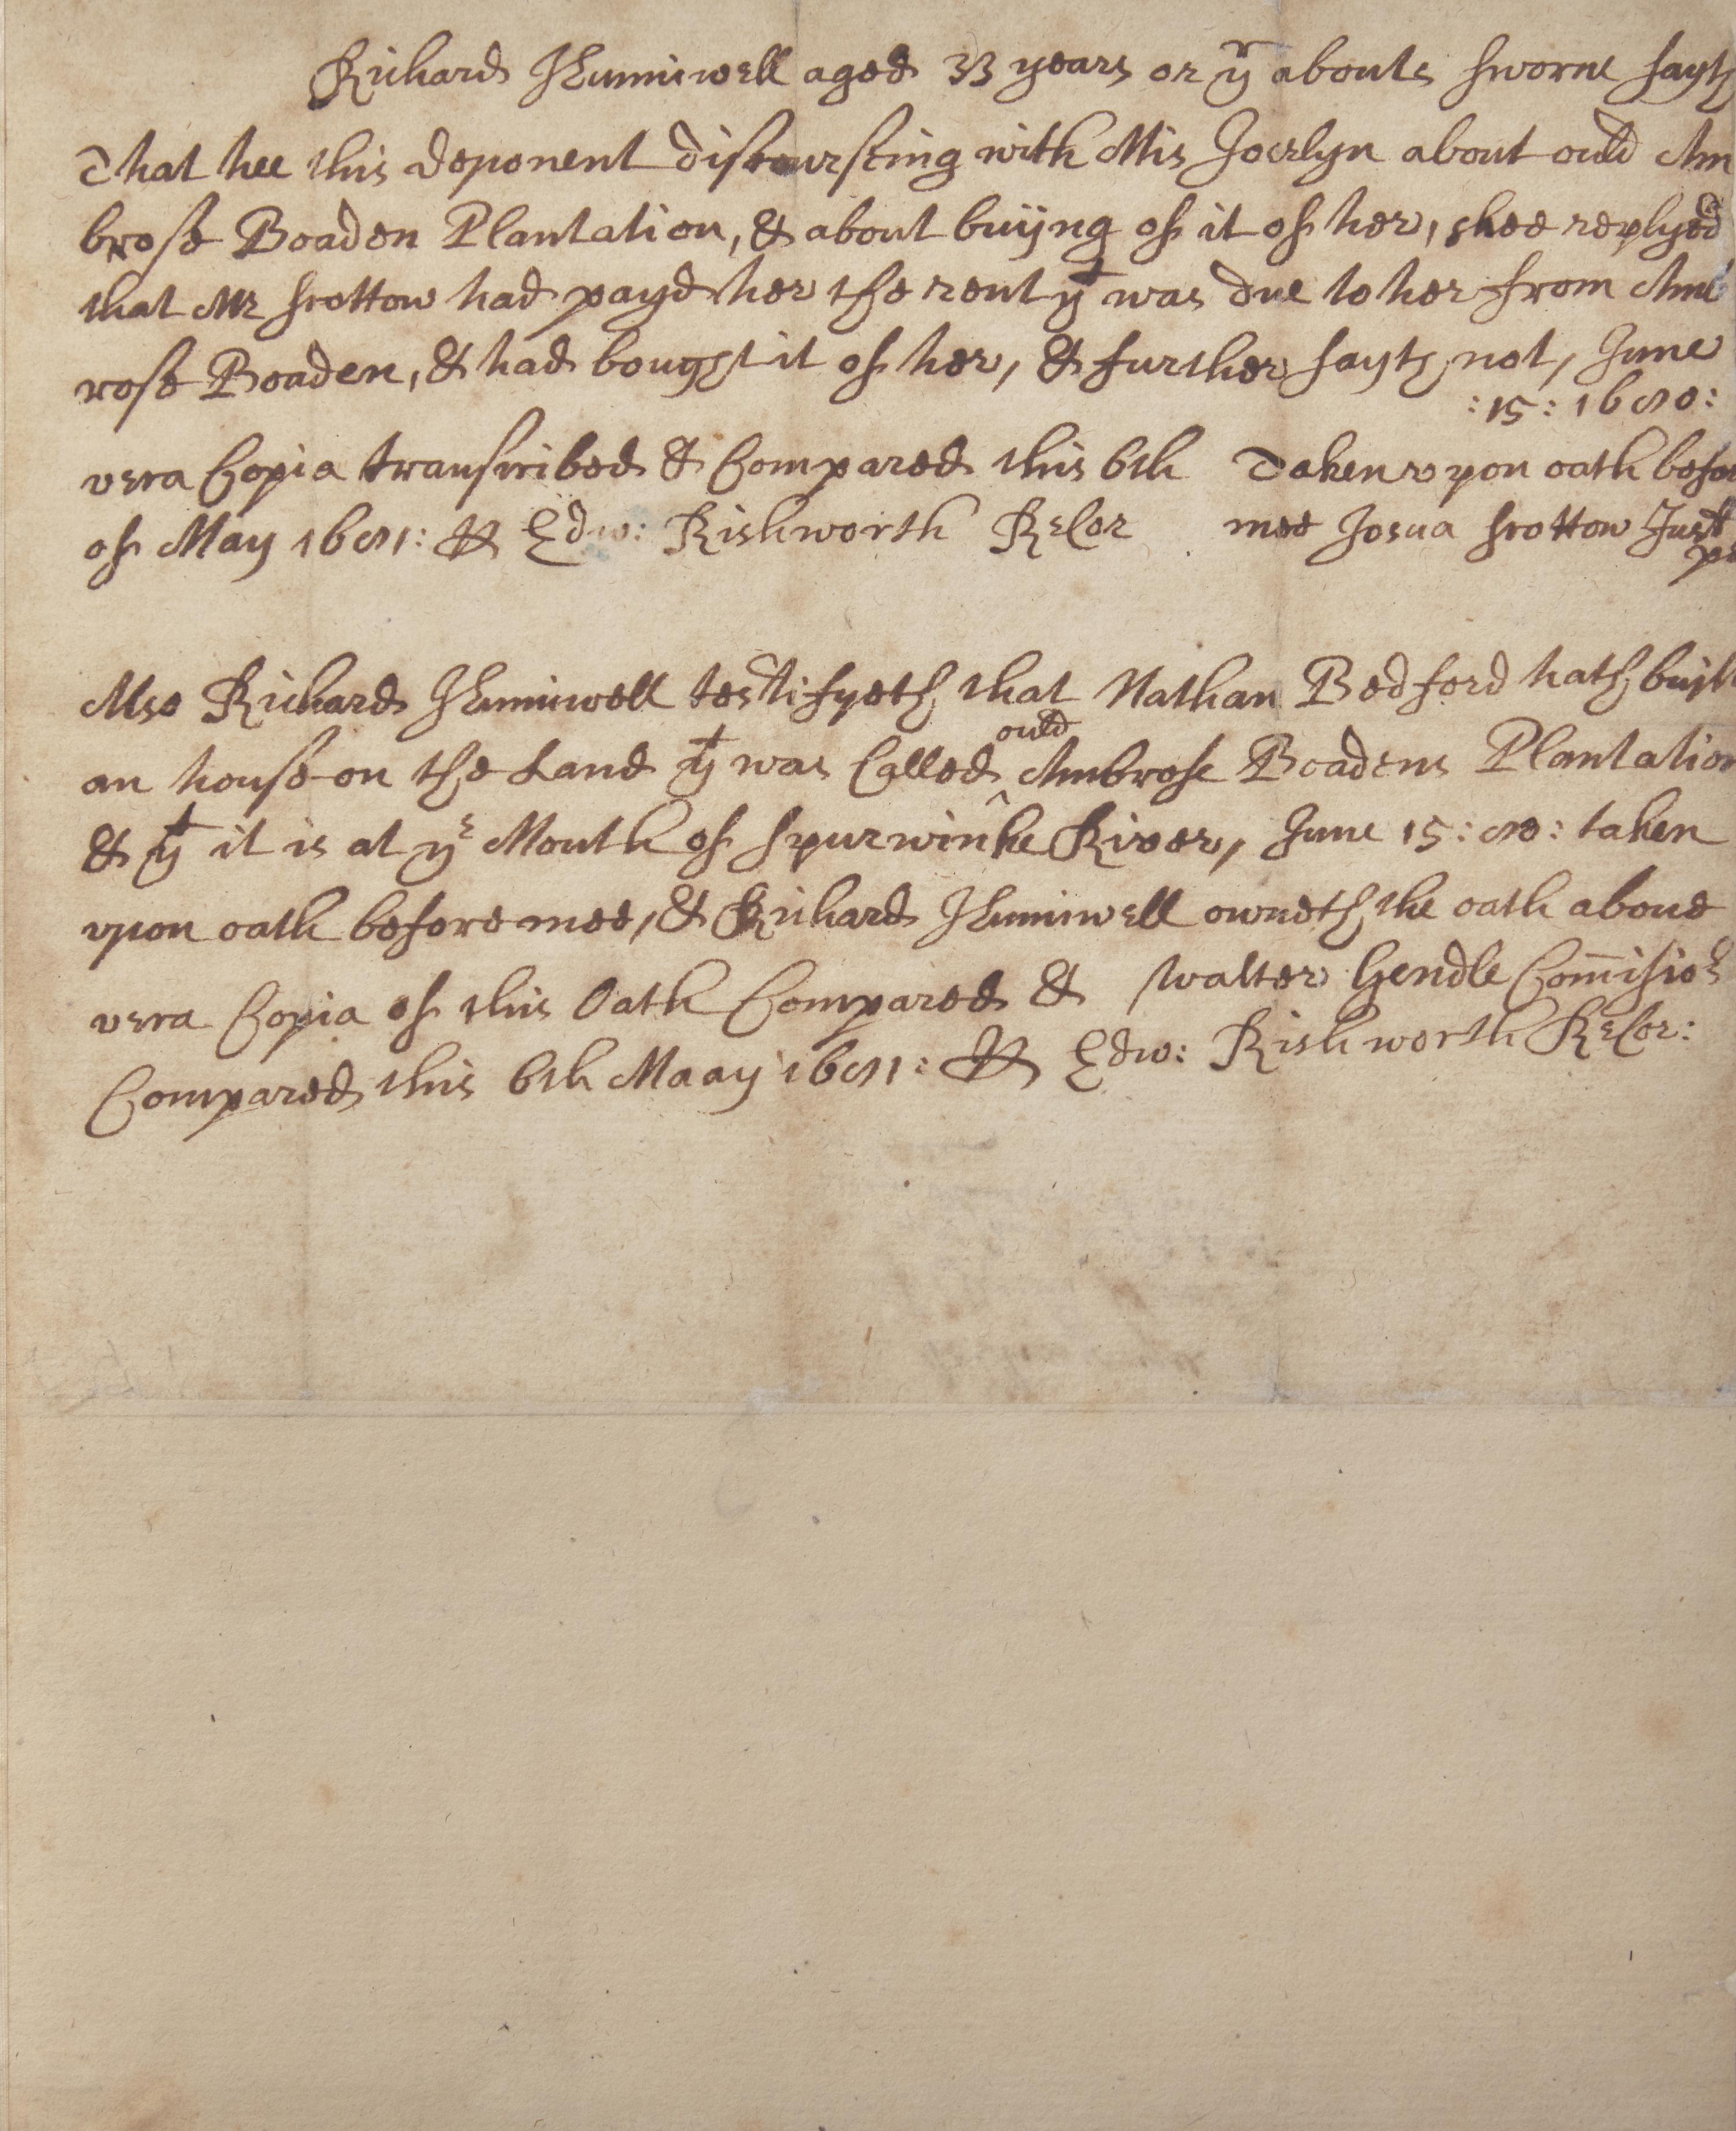 Richard Hunniwell aged 33 years or yr abouts sworne sayth
That hee this deponent discoursing with Mis Jocelyn about ould Am
brose Boaden Plantation, & about buijng of it of her, shee replyed
that Mr Scottow had payd her the rent yt was due to her from Amb
rose Boaden, & had bought it of her, & further sayth not, June
:15: 1680:
vera Copia transcribed & Compared this 6th Taken vpon oath befor
of May 1681: p Edw: Rishworth ReCor mee Josua Scottow Just
pe
Also Richard Hunniwell testifyeth that Nathan Bedford hath built
an house on the Land yt was Called ould Ambrose Boadens Plantation
& yt it is at ye Mouth of Spurwinke River, June 15: 80: taken
vpon oath before mee, & Richard Hunniwell owneth the oath aboue
vera Copia of this Oath Compared & Walter Gendle Commisior
Compared this 6th Maay 1681: p Edw: Rishworth ReCor: